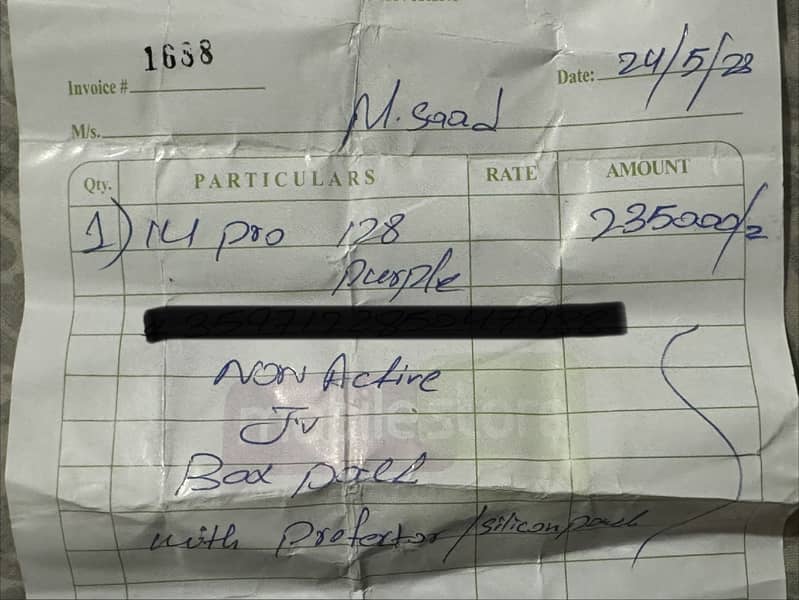 1688
Invoice #
Date: 24/5/23
M/s. M. Saad
Qty. PARTICULARS RATE AMOUNT
1) 14 pro 128 235000/=
purple
NON Active
Jv
mobile store
Box pack
with Protector / silicon pouch